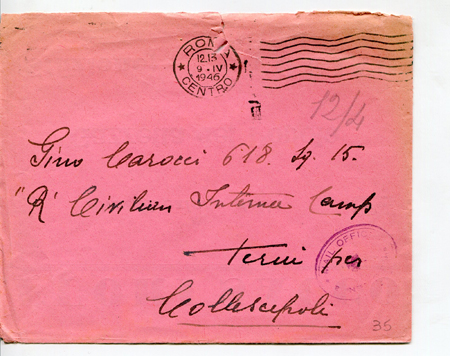 ROMA
CENTRO
12.13
9 - IV
1946
12/4
Gino Carocci 618. Sq. 15.
"R" Civilian Internee Camp
Terni per
Collescipoli
MAIL OFFI
35